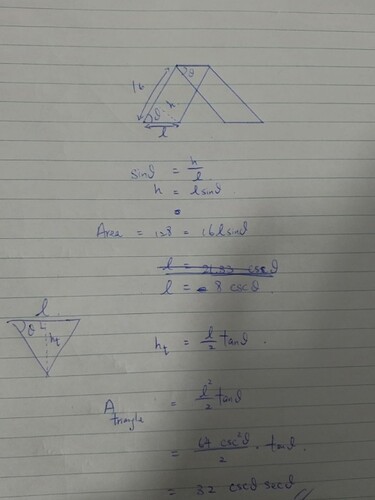 16
θ
θ
h
l
sinθ = h/l
h = l sinθ
=
Area = 128 = 16 l sinθ
l = 8 cscθ
l
θ
h_t
h_t = l/2 tanθ.
A_triangle = l²/2 tanθ
= 64 csc²θ/2 . tanθ
= 32 cscθ secθ